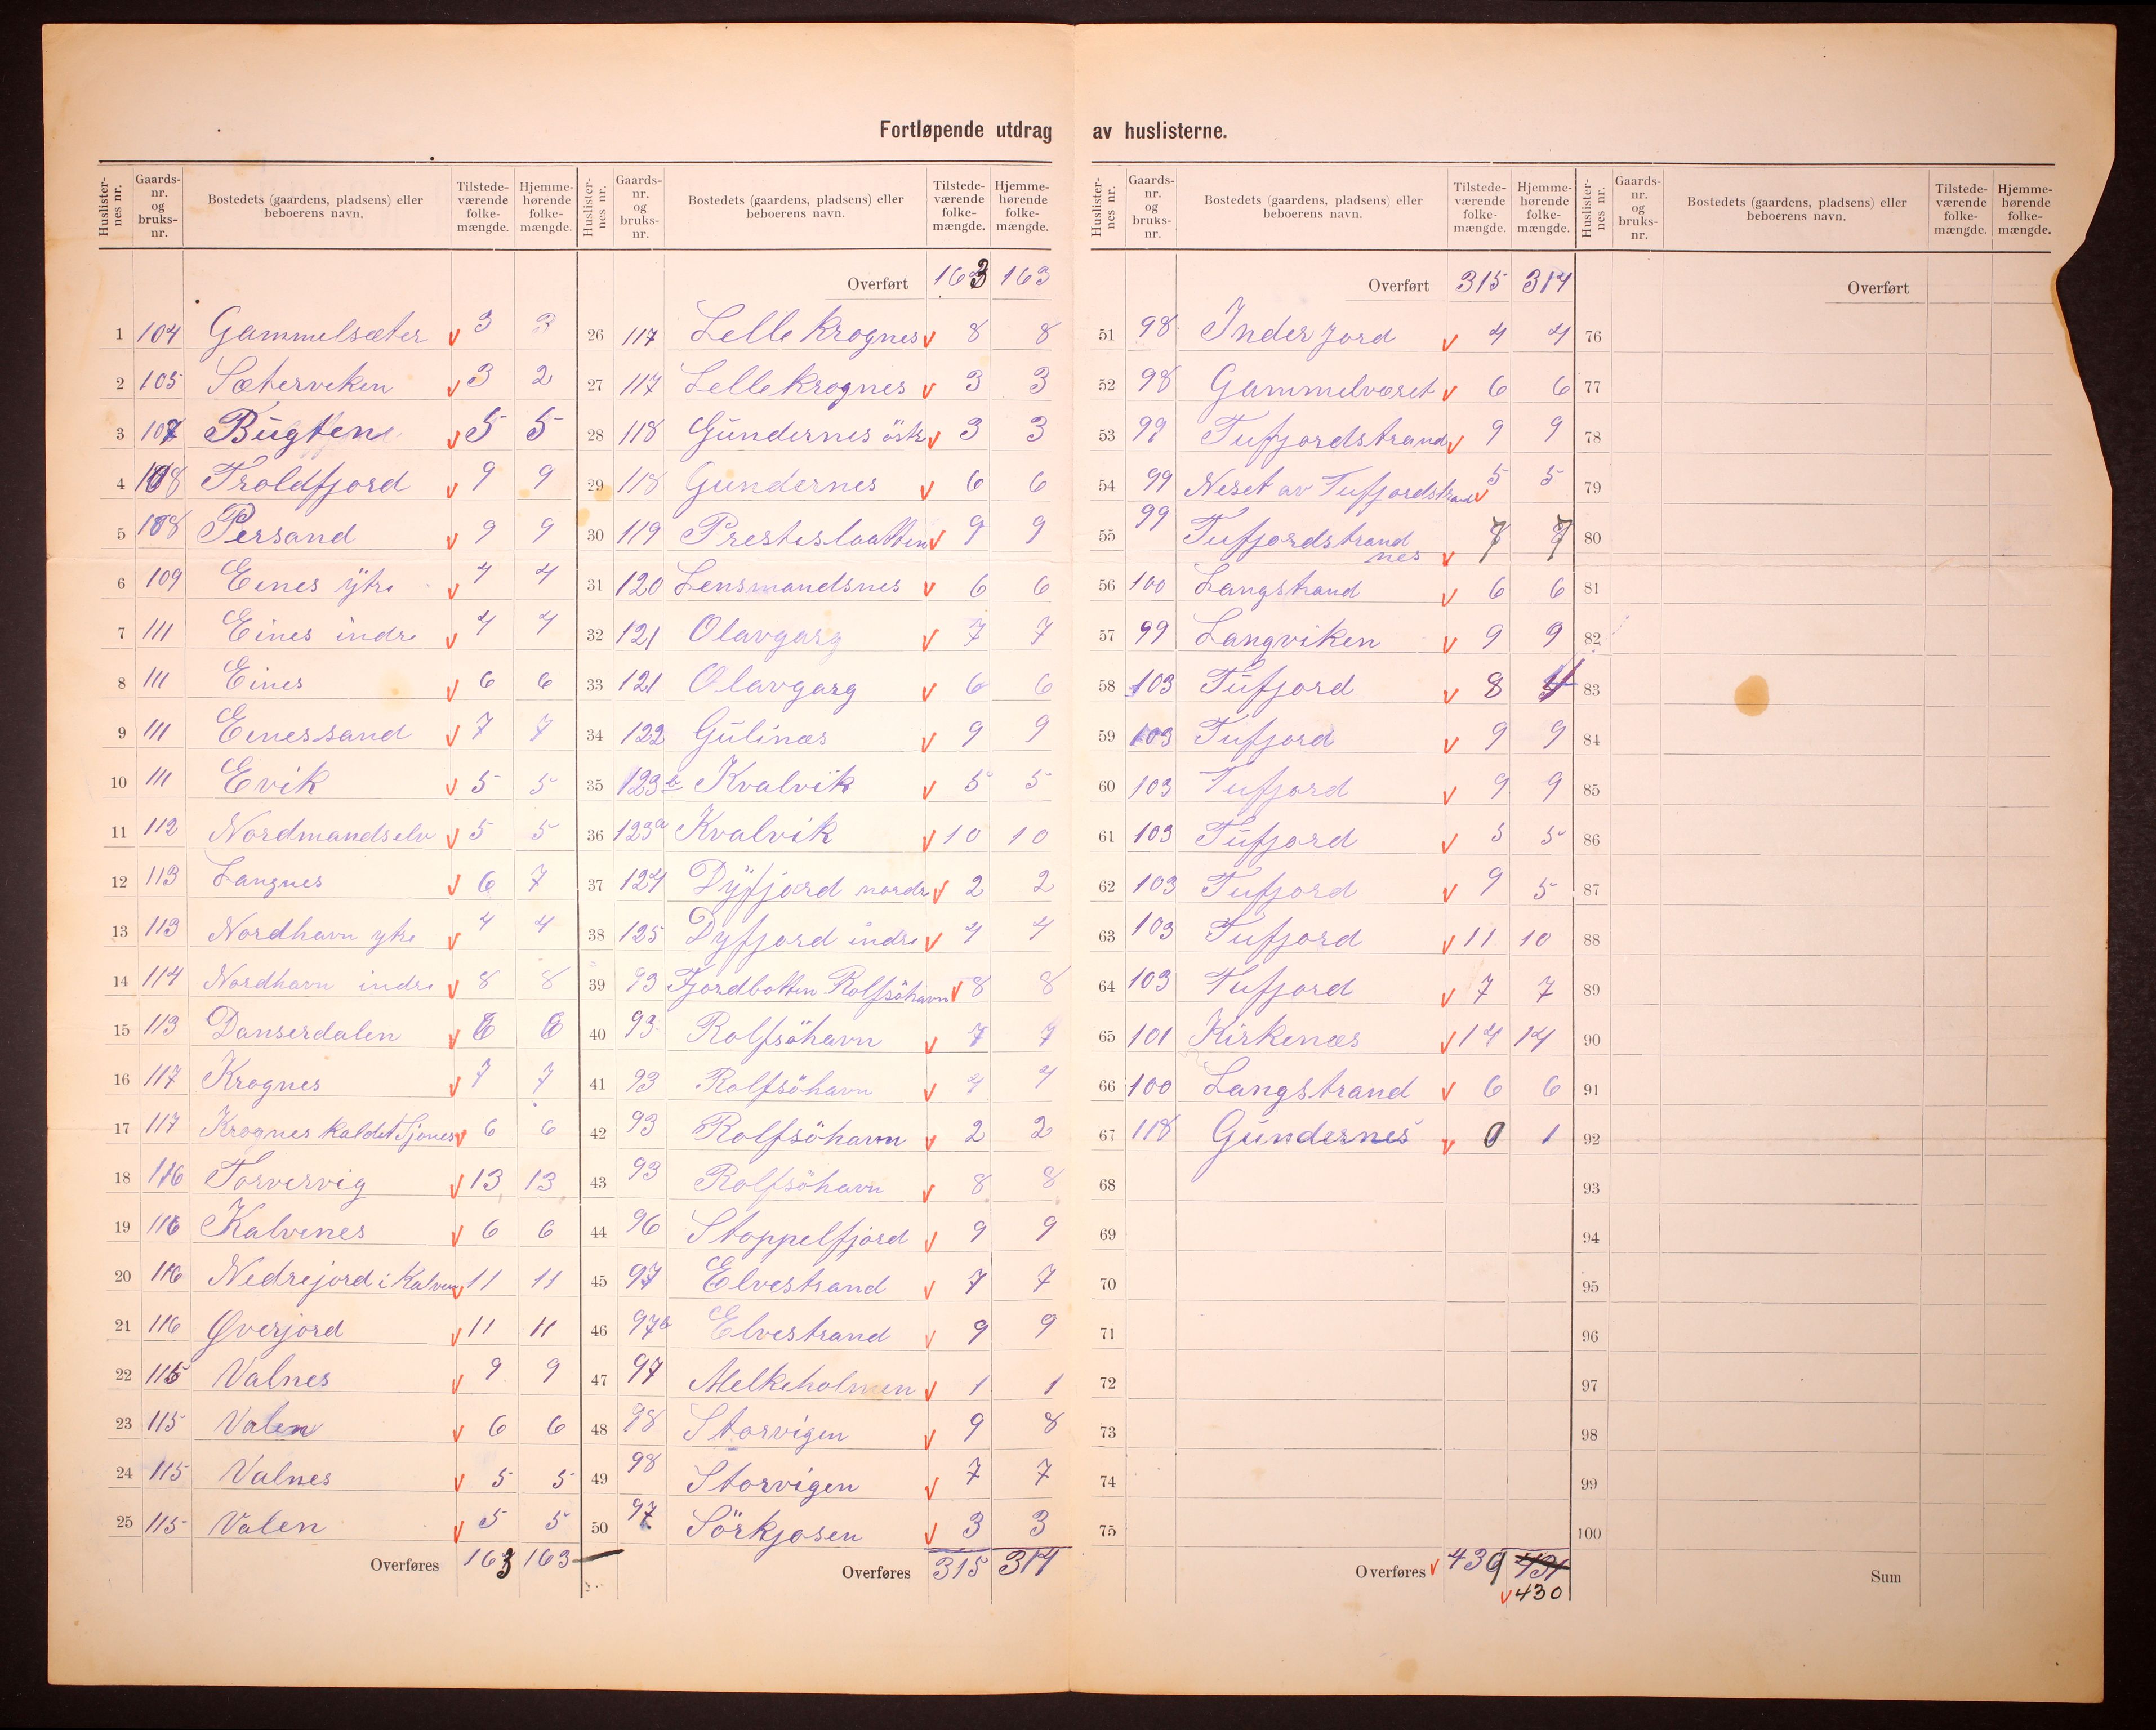 Fortløpende utdrag av huslisterne.
Huslister-nes nr. Gaards-nr. og bruks-nr. Bostedets (gaardens, pladsens) eller beboerens navn. Tilstede-værende folke-mængde. Hjemme-hørende folke-mængde.
1 104 Gammelsæter v 3 3
2 105 Sæterviken v 3 2
3 107 Bugten v 5 5
4 108 Troldfjord v 9 9
5 108 Persand v 9 9
6 109 Eines ytre v 4 4
7 111 Eines indre v 4 4
8 111 Eines v 6 6
9 111 Einessand v 7 7
10 111 Evik v 5 5
11 112 Nordmandselv v 5 5
12 113 Langnes v 6 7
13 113 Nordhavn ytre v 4 4
14 114 Nordhavn indre v 8 8
15 113 Danserdalen v 6 6
16 117 Krognes v 7 7
17 117 Krognes kaldet Sjones v 6 6
18 116 Torvervig v 13 13
19 116 Kalvenes v 6 6
20 116 Nedrejord i Kalven v 11 11
21 116 Øverjord v 11 11
22 115 Valnes v 9 9
23 115 Valen v 6 6
24 115 Valnes v 5 5
25 115 Valen v 5 5
Overføres 163 163
Huslister-nes nr. Gaards-nr. og bruks-nr. Bostedets (gaardens, pladsens) eller beboerens navn. Tilstede-værende folke-mængde. Hjemme-hørende folke-mængde.
Overført 163 163
26 117 Lelle Krognes v 8 8
27 117 Lelle Krognes v 3 3
28 118 Gundernes östre v 3 3
29 118 Gundernes v 6 6
30 119 Presteslaatten v 9 9
31 120 Lensmandsnes v 6 6
32 121 Olavgarg v 7 7
33 121 Olavgarg v 6 6
34 122 Gulinæs v 9 9
35 123 b Kvalvik v 5 5
36 123 a Kvalvik v 10 10
37 124 Dyfjord nordr v 2 2
38 125 Dyfjord indre v 4 4
39 93 Fjordbotten Rolfsöhavn v 8 8
40 93 Rolfsöhavn v 7 7
41 93 Rolfsöhavn v 4 4
42 93 Rolfsöhavn v 2 2
43 93 Rolfsöhavn v 8 8
44 96 Stoppelfjord v 9 9
45 97 Elvestrand v 7 7
46 97 a Elvestrand v 9 9
47 97 Melkeholmen v 1 1
48 98 Storvigen v 9 8
49 98 Storvigen v 7 7
50 97 Sörkjosen v 3 3
Overføres 315 314
Huslister-nes nr. Gaards-nr. og bruks-nr. Bostedets (gaardens, pladsens) eller beboerens navn. Tilstede-værende folke-mængde. Hjemme-hørende folke-mængde.
Overført 315 314
51 98 Inderjord v 4 4
52 98 Gammelværet v 6 6
53 99 Tufjordstrand v 9 9
54 99 Neset av Tufjordstrand v 5 5
55 99 Tufjordstrand nes v 7 7
56 100 Langstrand v 6 6
57 99 Langviken v 9 9
58 103 Tufjord v 8
59 103 Tufjord v 9 9
60 103 Tufjord v 9 9
61 103 Tufjord v 5 5
62 103 Tufjord v 9 5
63 103 Tufjord v 11 10
64 103 Tufjord v 7 7
65 101 Kirkenæs v 14 14
66 100 Langstrand v 6 6
67 118 Gundernes v 0 1
68
69
70
71
72
73
74
75
Overføres v 439 431
v 430
Huslister-nes nr. Gaards-nr. og bruks-nr. Bostedets (gaardens, pladsens) eller beboerens navn. Tilstede-værende folke-mængde. Hjemme-hørende folke-mængde.
Overført
76
77
78
79
80
81
82
83
84
85
86
87
88
89
90
91
92
93
94
95
96
97
98
99
100
Sum